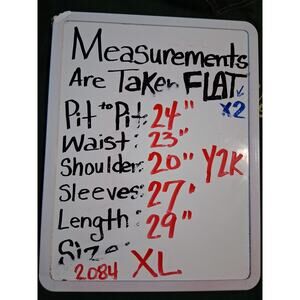 Measurements
Are Taken FLAT
x2
Pit to Pit: 24"
Waist: 23"
Shoulder: 20" Y2K
Sleeves: 27"
Length: 29"
Size:
2084 XL